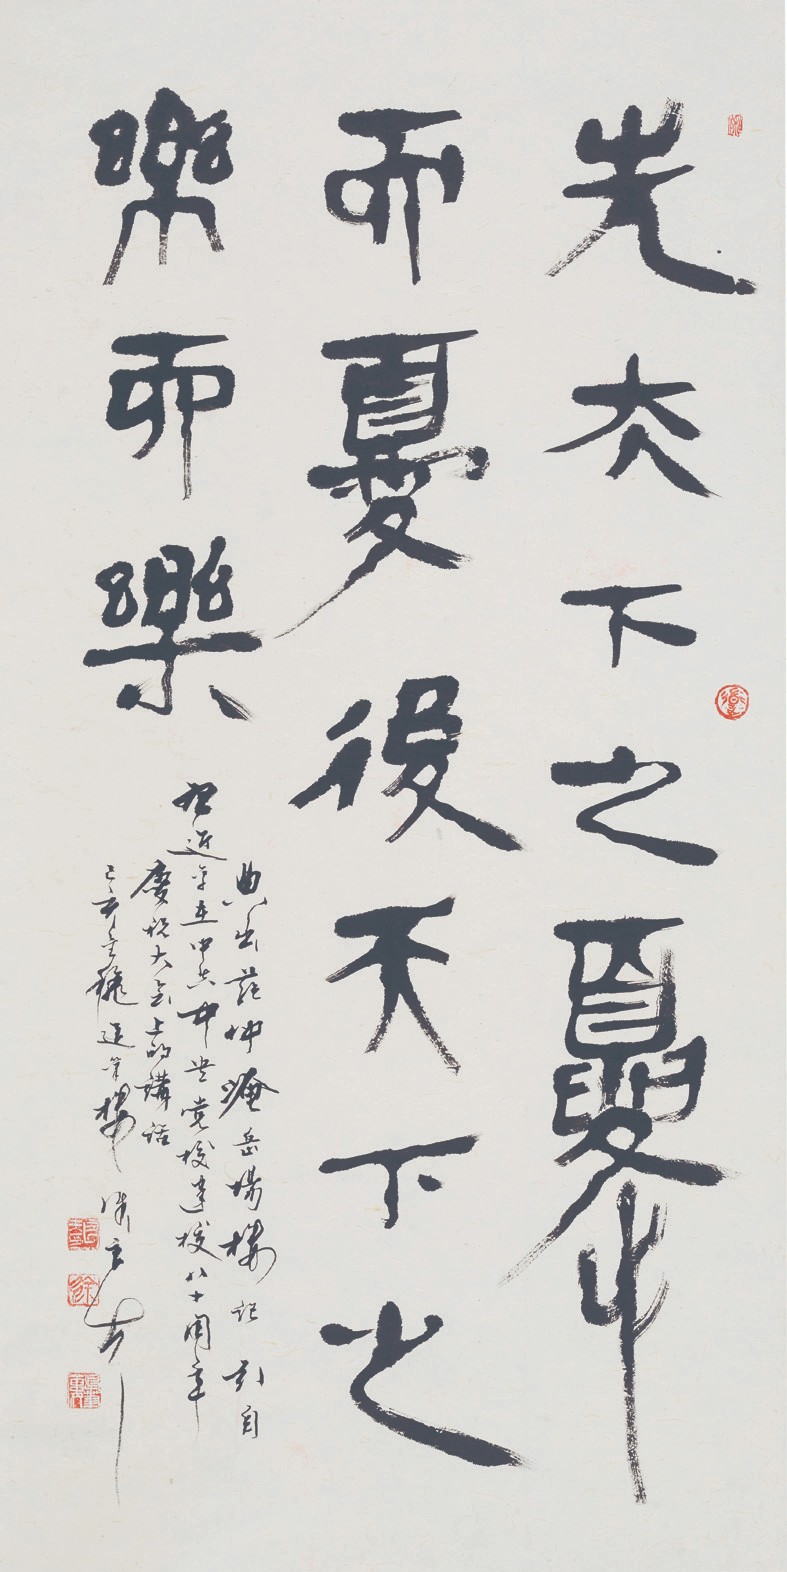 先天下之憂
而憂後天下之
樂而樂
典出范仲淹岳陽樓記 引自
習近平在中共中央党校建校八十周年
慶祝大会上的講話
己亥金秋